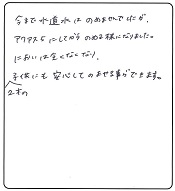 今まで水道水はのめませんでしたが、
アクアス5にしてからのめる様になりました。
においは全くなくなり、
子供にも安心してのませる事ができます。
2才の